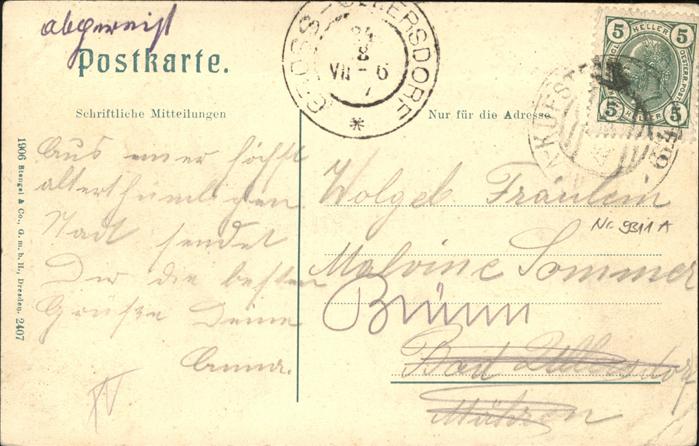 abgereist
Postkarte.
GROSS-ULLERSDORF
24
8
VII - 6
7
*
5 HELLER 5
5 HELLER 5
KUFSTEIN
Schriftliche Mitteilungen
Nur für die Adresse
Aus einer höchst
altertümlichen
Stadt sendet
Dir die besten
Grüße Deine
Anna.
IV
Wolgeb Fräulein
Nr. 9311 A
Malvine Sommer
Brünn
Bad Ullersdorf
Mähren
1906 Stengel & Co., G. m. b. H., Dresden. 2407